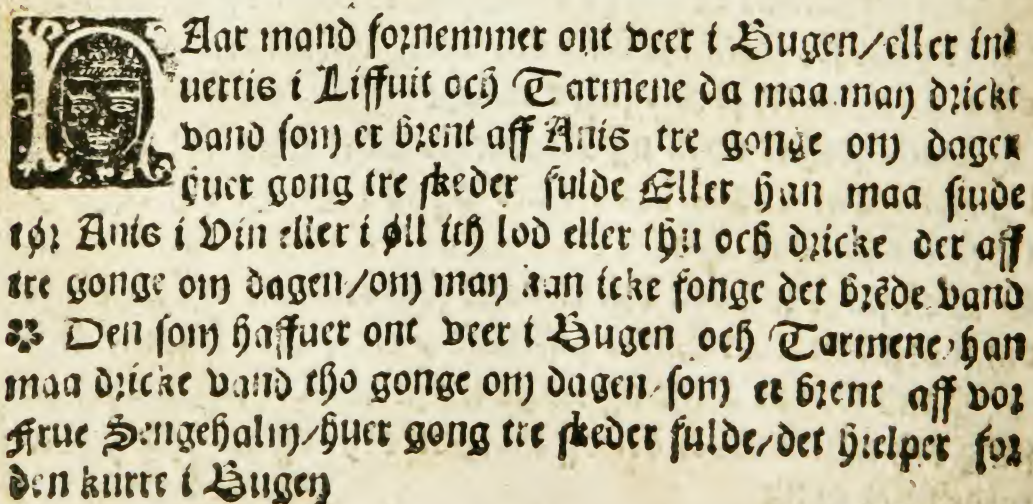 NAar mand fornemmer ont veer i Bugen/eller ind
uertis i Liffuit och Tarmene da maa man dricke
vand som er brent aff Anis tre gonge om dagen
huer gong tre skeder fulde Eller han maa siude
tør Anis i Vin eller i øll ith lod eller thu och dricke der aff
tre gonge om dagen/om man kan icke fonge det brēde vand
Den som haffuer ont veer i Bugen och Tarmene/han
maa dricke vand tho gonge om dagen/som er brent aff vor
Frue Sengehalm/huer gong tre skeder fulde/det hielper for
den kurre i Bugen